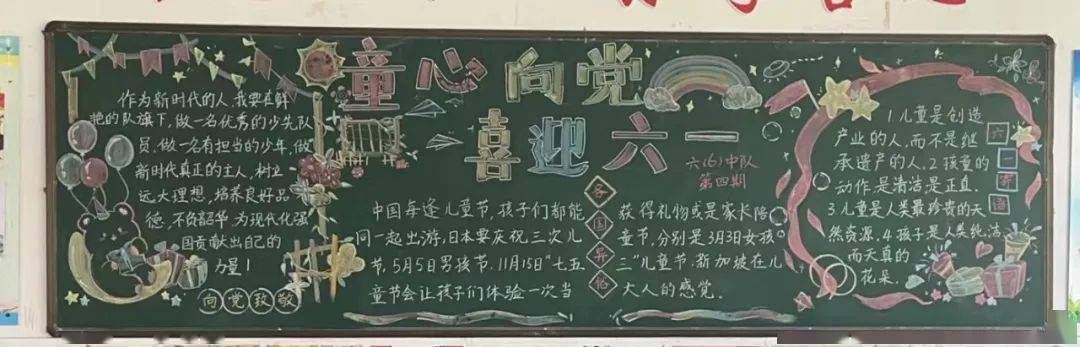 童心向党
喜迎六一
六(6)中队
第四期
作为新时代的人,我要在鲜
艳的队旗下,做一名优秀的少先队
员,做一名有担当的少年,做
新时代真正的主人,树立
远大理想,培养良好品
德,不负韶华为现代化强
国贡献出自己的
力量!
向党致敬
各国异俗
中国每逢儿童节,孩子们都能 获得礼物或是家长陪
同一起出游,日本要庆祝三次儿 童节,分别是3月3日女孩
节,5月5日男孩节,11月15日"七五 三"儿童节,新加坡在儿
童节会让孩子们体验一次当 大人的感觉.
六一寄语
1儿童是创造
产业的人,而不是继
承遗产的人.2孩童的
动作是清洁是正直.
3儿童是人类最珍贵的天
然资源.4孩子是人类纯洁
而天真的
花朵.